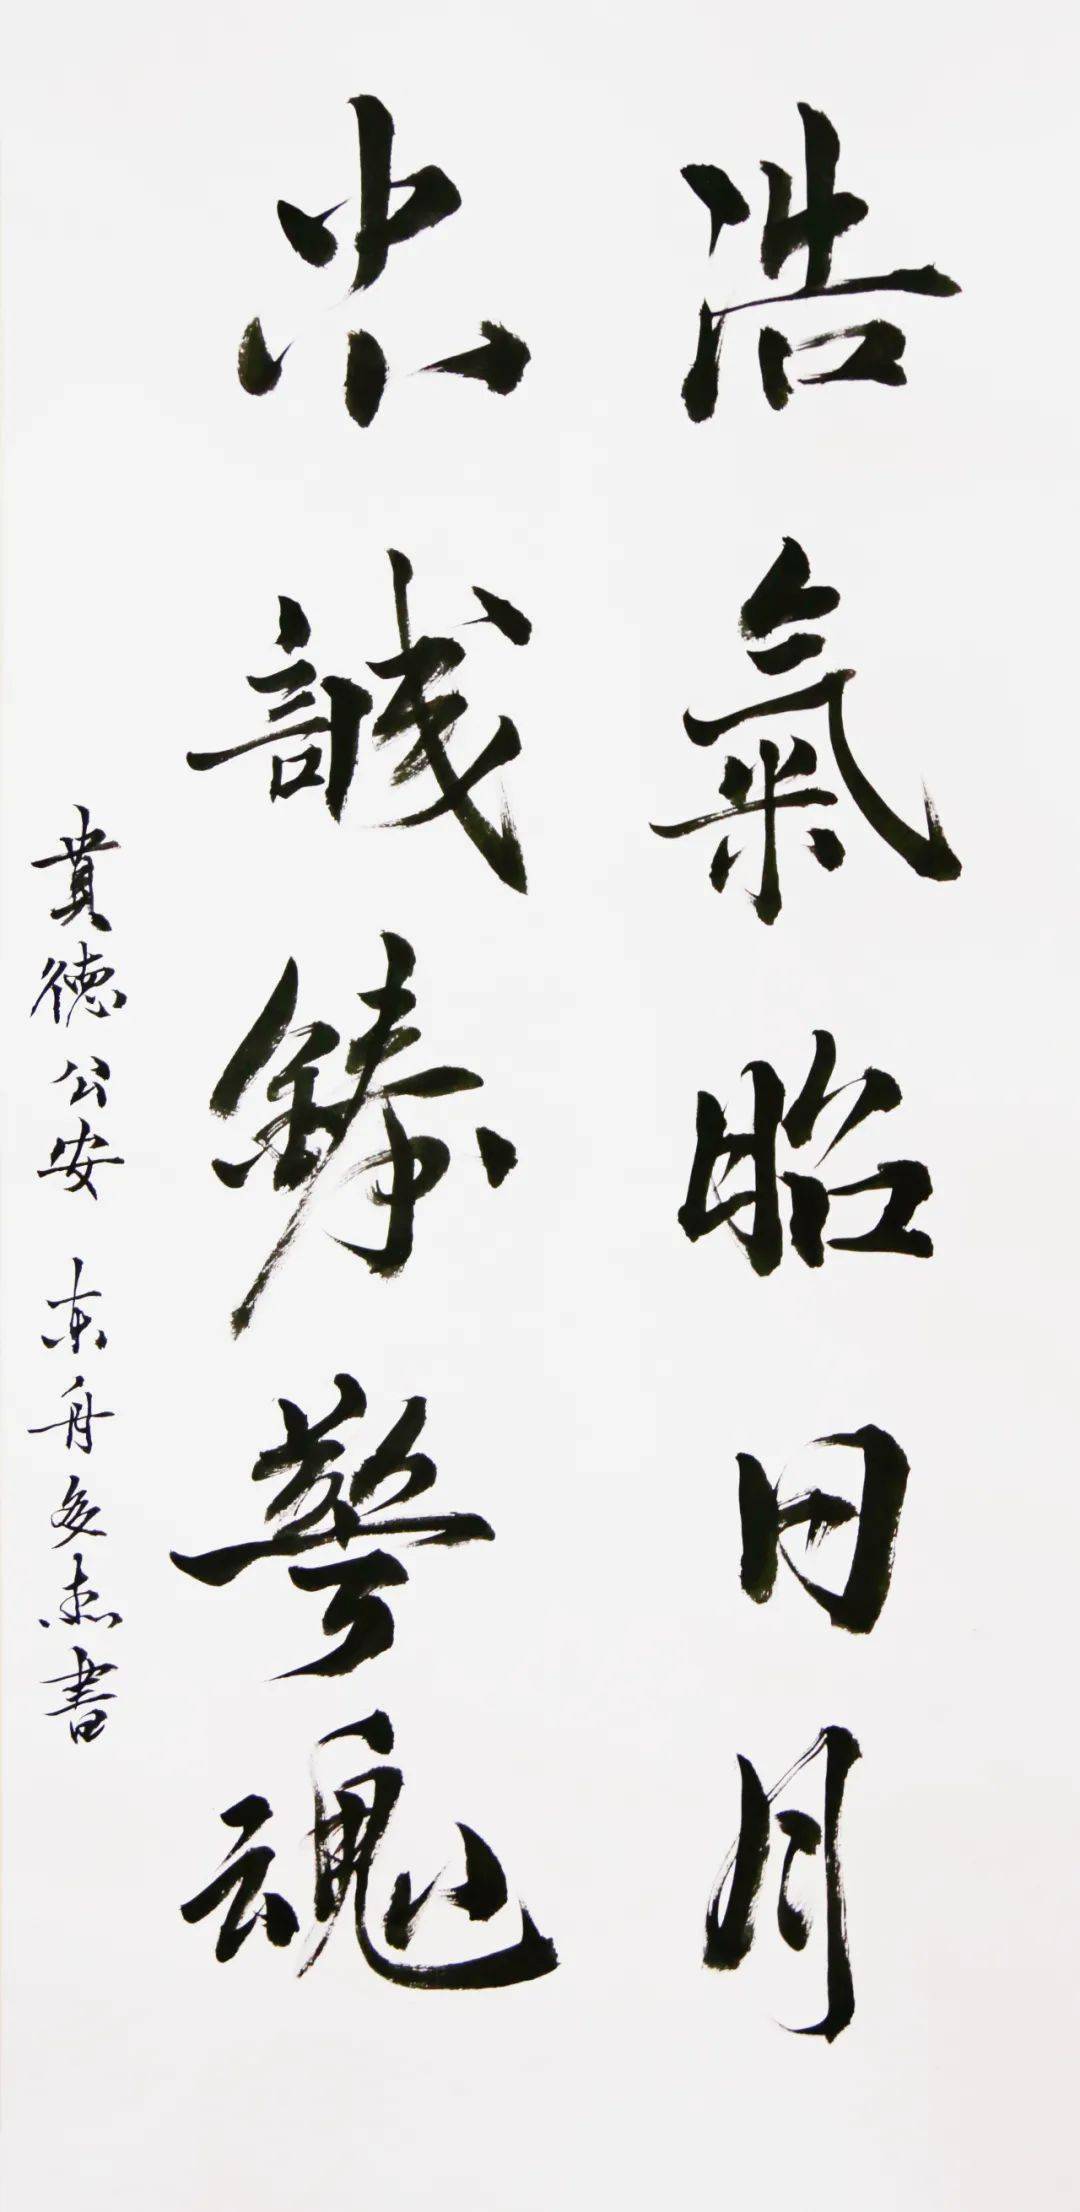 浩氣昭日月
忠誠鑄警魂
貴德公安 東舟多杰書